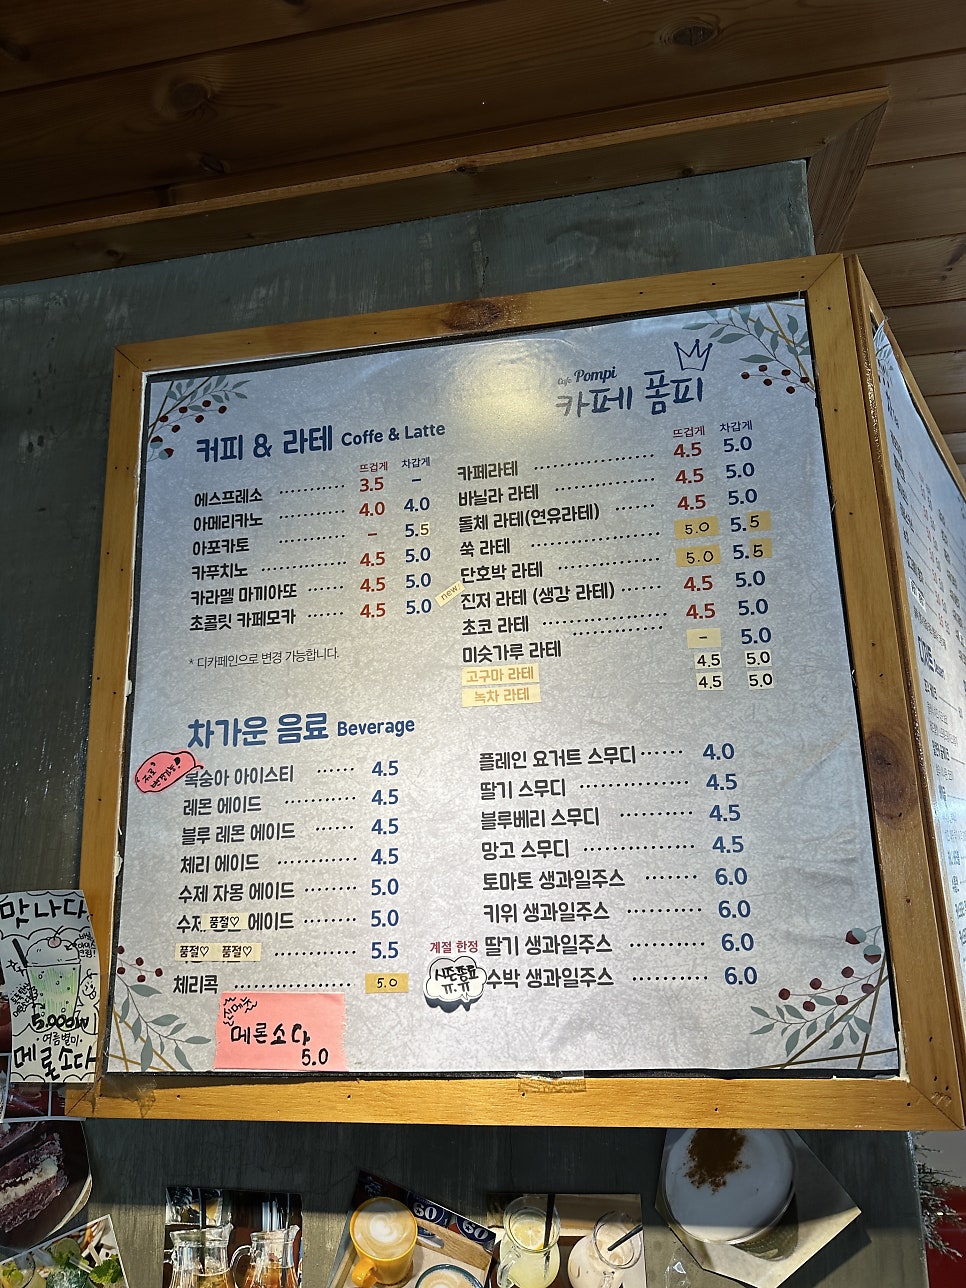 Cafe Pompi
카페 폼피
커피 & 라테 Coffe & Latte
뜨겁게 차갑게
에스프레소 3.5 –
아메리카노 4.0 4.0
아포카토 – 5.5
카푸치노 4.5 5.0
카라멜 마끼아또 4.5 5.0
초콜릿 카페모카 4.5 5.0
* 디카페인으로 변경 가능합니다.
뜨겁게 차갑게
카페라테 4.5 5.0
바닐라 라테 4.5 5.0
돌체 라테(연유라테) 4.5 5.0
쑥 라테 5.0 5.5
단호박 라테 5.0 5.5
new! 진저 라테 (생강 라테) 4.5 5.0
초코 라테 4.5 5.0
미숫가루 라테 – 5.0
고구마 라테 4.5 5.0
녹차 라테 4.5 5.0
차가운 음료 Beverage
복숭아 아이스티 4.5
레몬 에이드 4.5
블루 레몬 에이드 4.5
체리 에이드 4.5
수제 자몽 에이드 5.0
수제 품절♡ 에이드 5.0
품절♡ 품절♡ 5.5
체리콕 5.0
메론소다
5.0
플레인 요거트 스무디 4.0
딸기 스무디 4.5
블루베리 스무디 4.5
망고 스무디 4.5
토마토 생과일주스 6.0
키위 생과일주스 6.0
계절 한정 딸기 생과일주스 6.0
시즌종료 ㅠ.ㅠ 수박 생과일주스 6.0
맛나다
5.000
여름별미
메론소다
60
60